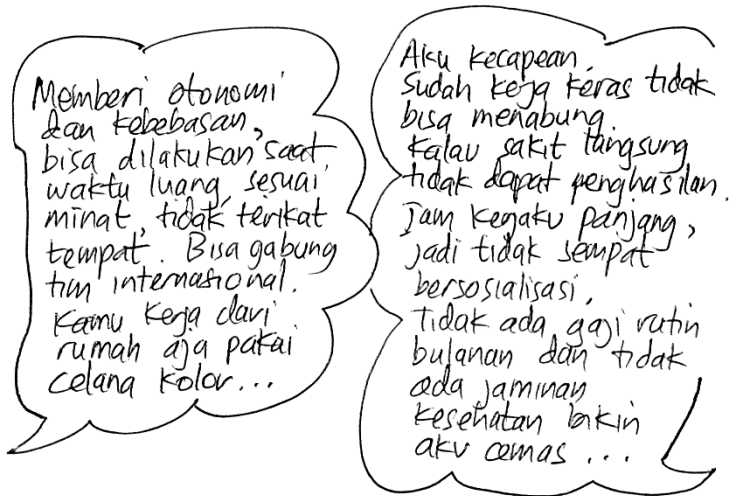 Memberi otonomi
dan kebebasan,
bisa dilakukan saat
waktu luang, sesuai
minat, tidak terikat
tempat. Bisa gabung
tim internasional.
Kamu kerja dari
rumah aja pakai
celana kolor...
Aku kecapean.
Sudah kerja keras tidak
bisa menabung.
Kalau sakit langsung
tidak dapat penghasilan.
Jam kerjaku panjang,
jadi tidak sempat
bersosialisasi.
Tidak ada gaji rutin
bulanan dan tidak
ada jaminan
kesehatan bikin
aku cemas...